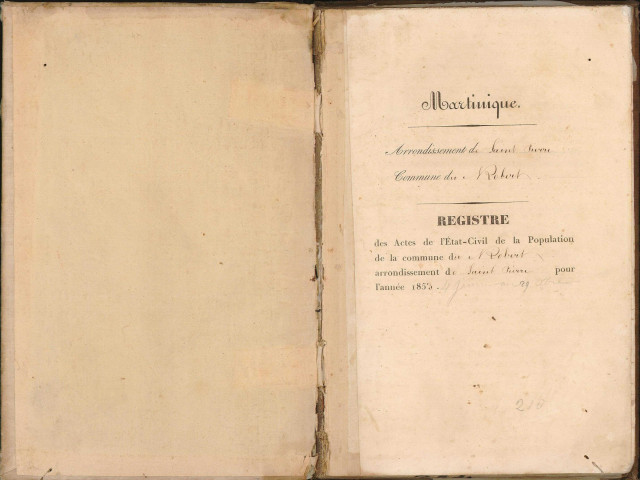 Martinique.
Arrondissement de Saint Pierre
Commune du Robert
REGISTRE
des Actes de l'État-Civil de la Population
de la commune du Robert
arrondissement de Saint Pierre pour
l'année 1855.
210